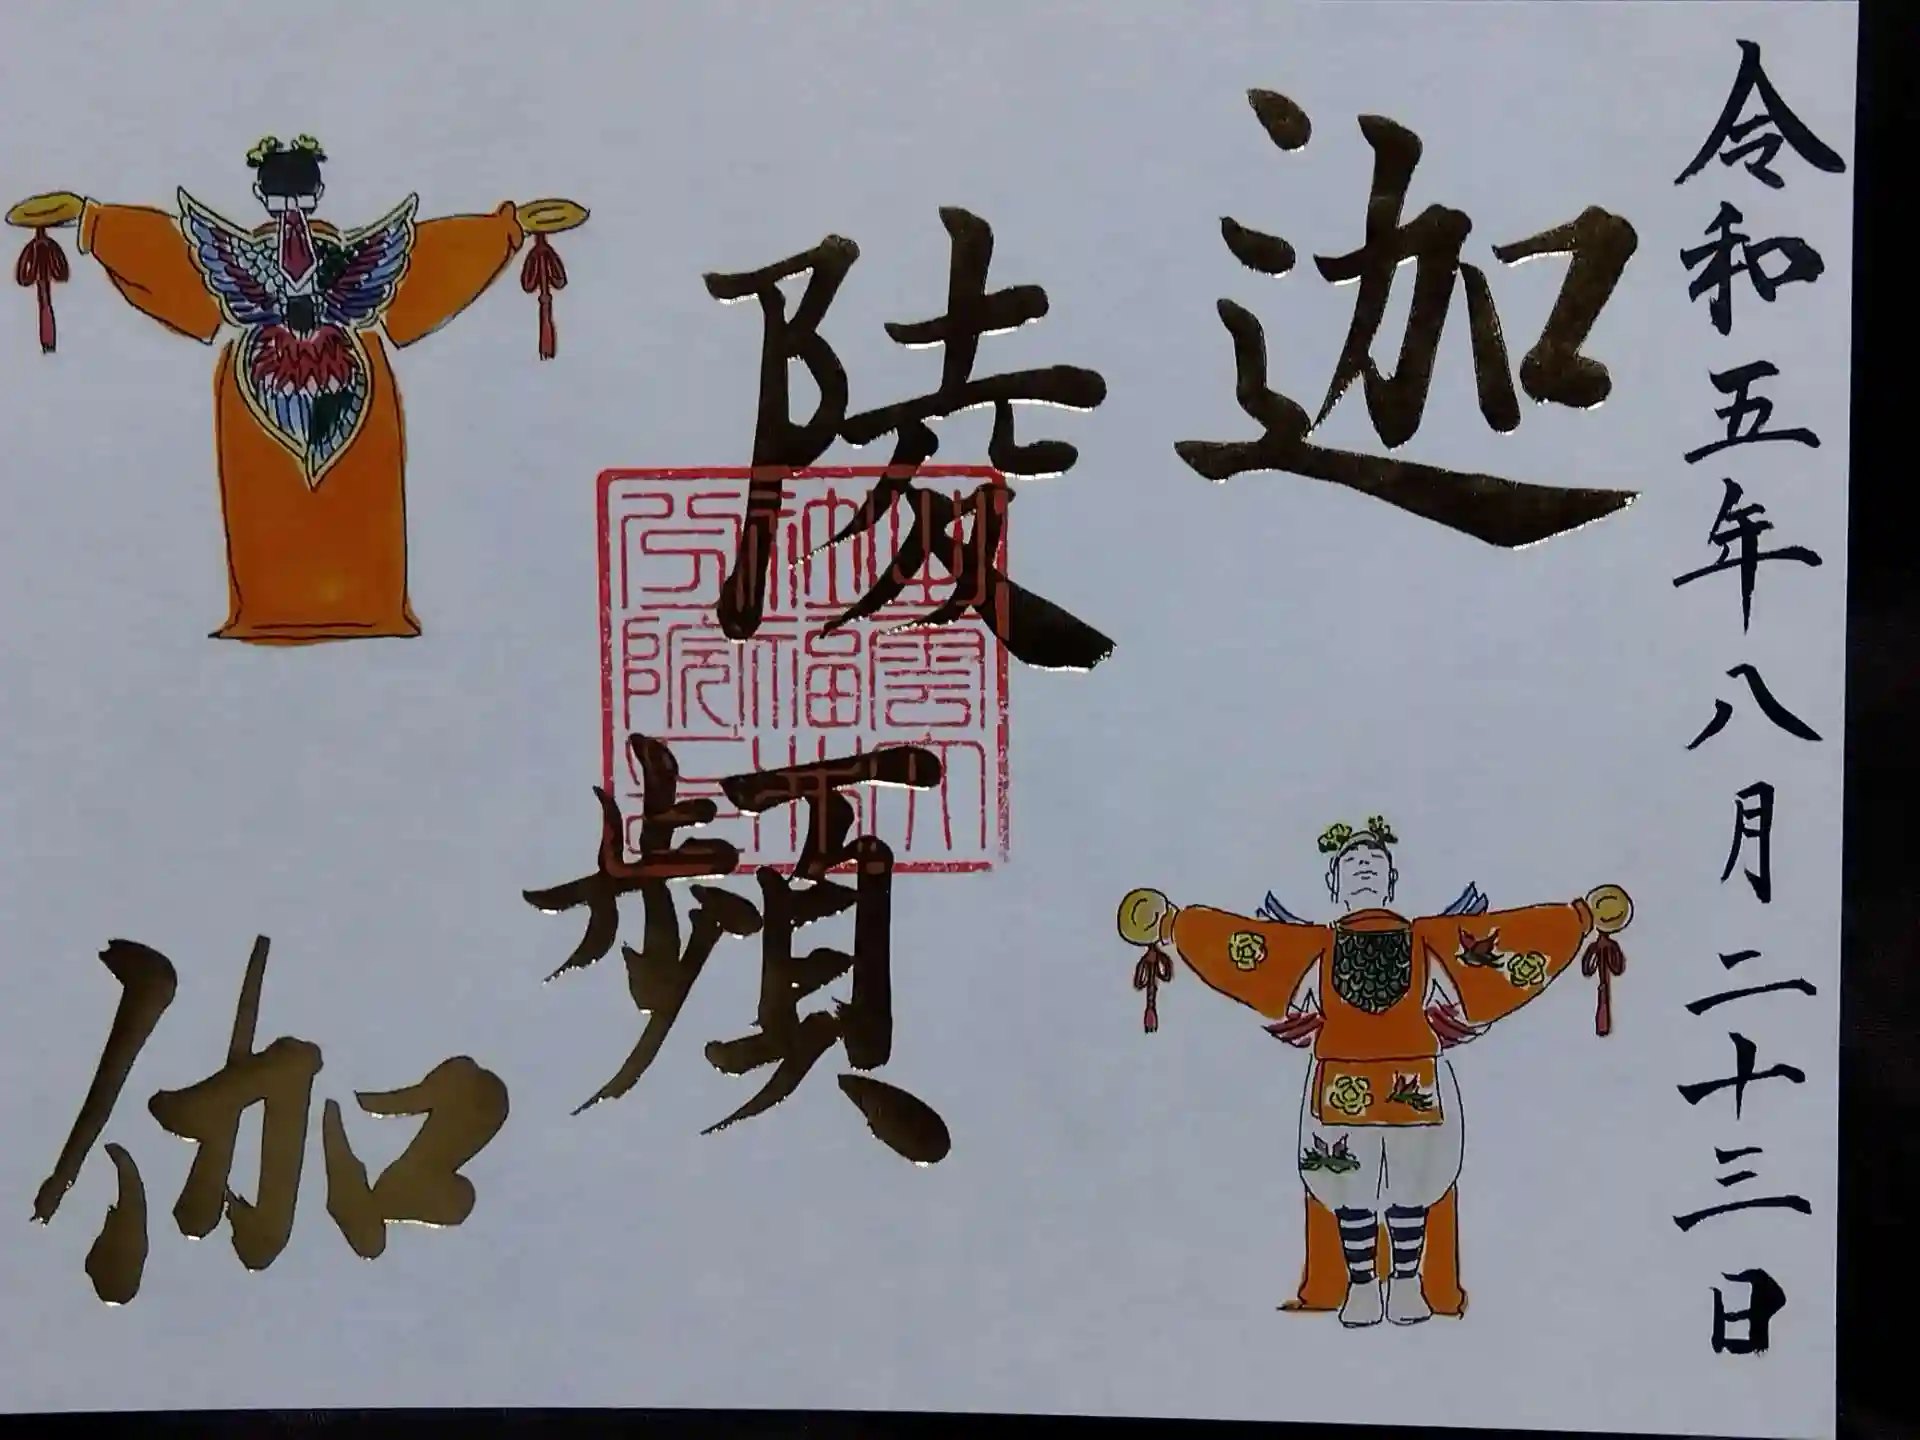 令和五年八月二十三日
迦
陵
頻
伽